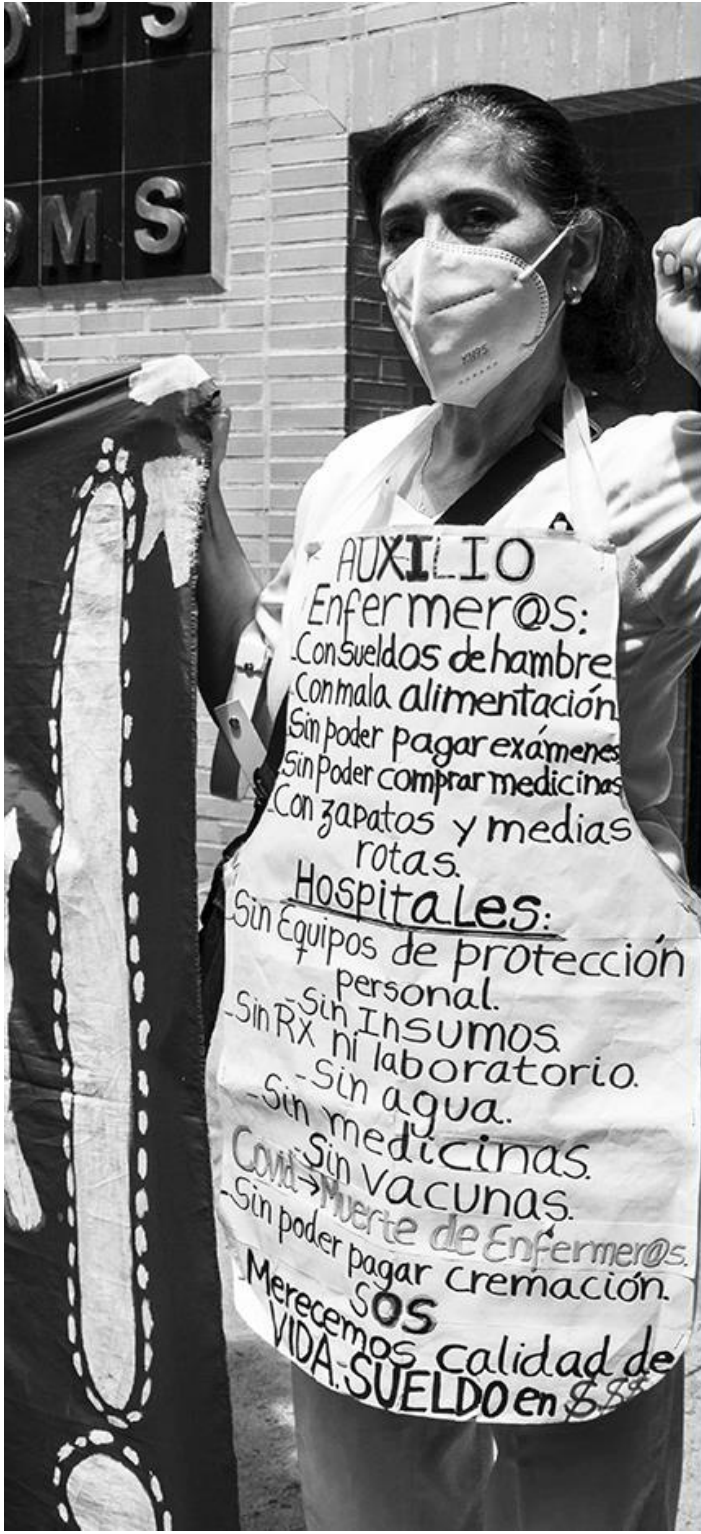 OPS
OMS
KN95
AUXILIO
Enfermer@s:
-Con sueldos de hambre
-Con mala alimentación
-Sin poder pagar exámenes
-Sin Poder comprar medicinas
-Con zapatos y medias
rotas.
Hospitales:
-Sin Equipos de protección
personal.
-Sin Insumos.
-Sin RX ni laboratorio.
-Sin agua.
-Sin medicinas.
-Sin vacunas.
Covid→Muerte de Enfermer@s.
-Sin poder pagar cremación.
SOS
Merecemos calidad de
VIDA-SUELDO en $$$